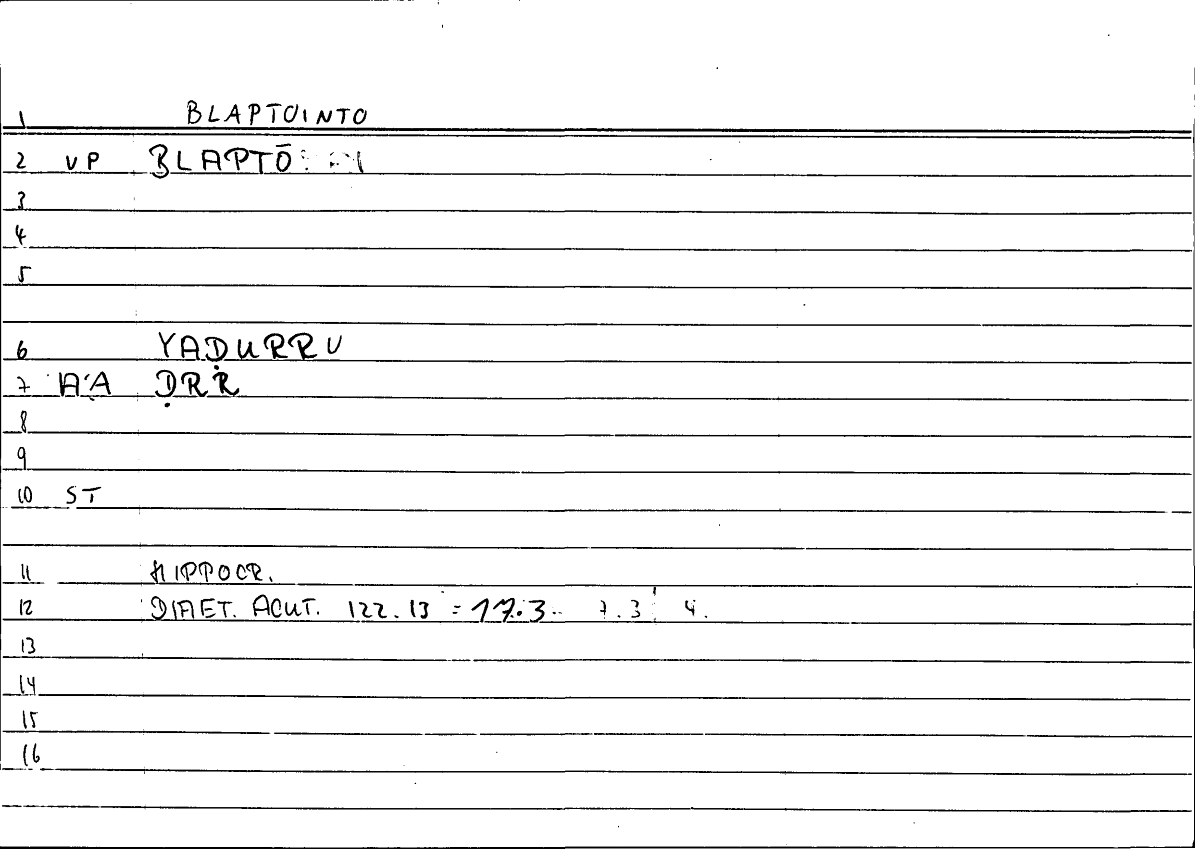 1 BLAPTOINTO
2 VP BLAPTŌ
3
4
5
6 YAḌURRU
7 A'A ḌRR
8
9
10 ST
11 HIPPOCR.
12 DIAET. ACUT. 122.13 = 17.3 7.3 4.
13
14
15
16